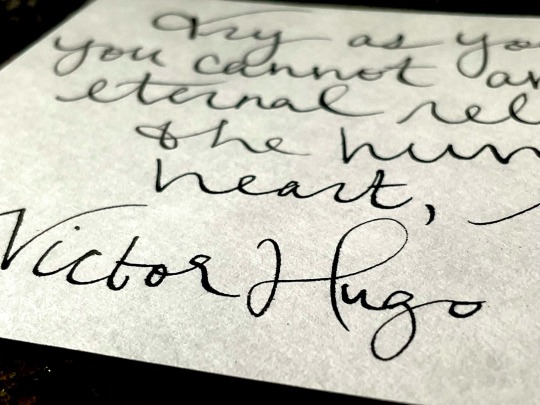 Try as yo
you cannot an
eternal rel
the hum
heart,
Victor Hugo